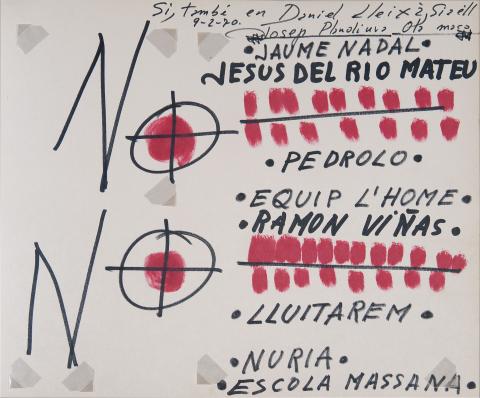 Si, també en Daniel Lleixà, Sisèll
9-2-70.
Josep Plandiura Oto maço
• JAUME NADAL •
JESUS DEL RIO MATEU
NO
• PEDROLO •
• EQUIP L'HOME •
• RAMON VIÑAS •
NO
• LLUITAREM •
• NURIA •
• ESCOLA MASSANA •